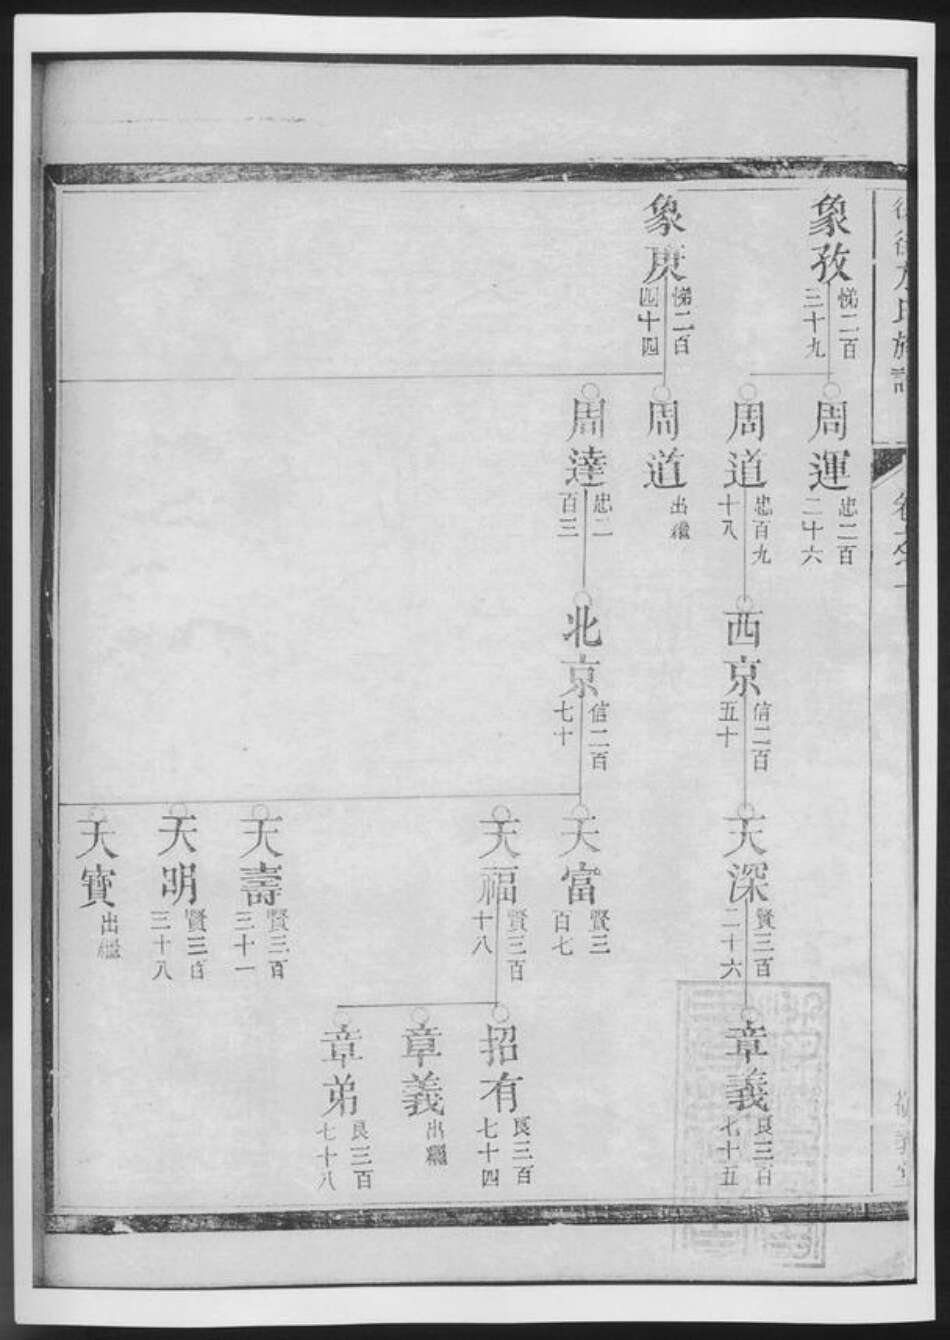 方氏族譜
卷之一
象孜
悌二百
三十九
象庚
悌二百
四十四
周運
忠二百
二十六
周道
忠百九
十八
周道
出繼
周達
忠二
百三
西京
信二百
五十
北京
信二百
七十
天深
賢三百
二十六
天富
賢三
百七
天福
賢三百
十八
天壽
賢三百
三十一
天明
賢三百
三十八
天寶
出繼
章義
良三百
七十五
招有
良三百
七十四
章義
出繼
章弟
良三百
七十八